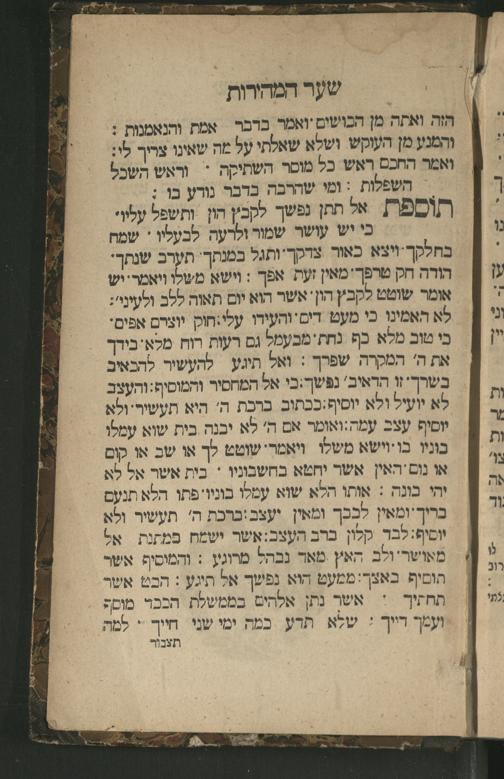 שער המהירות
הזה ואתה מן הבושים ואמר בדבר אמת והנאמנות :
והמנע מן העוקש ושלא שאלתי על מה שאינו צריך לי :
ואמר החכם ראש כל מוסר השתיקה · וראש השכל
השפלות : ומי שהרבה בדבר נודע בו :
תוספת אל תתן נפשך לקבץ הון ותשפל עליו ·
כי יש עושר שמור לרעה לבעליו · שמח
בחלקך ויצא כאור צדקך · ותגל במנתך תערב שנתך ·
הודה חק טרפך · מאין זעת אפך : וישא משלו ויאמר יש
אומר שוטט לקבץ הון · אשר הוא יום תאוה ללב ולעיני' :
לא האמינו כי מעט דים והעידו עלי : חוק יוצרם אפים ·
כי טוב מלא כף נחת · מבעמל גם רעות רוח מלא בידך
את ה' המקרה שפרך : ואל תיגע להעשיר להכאיב
בשרך · זו הדאיב' נפשך : כי אל המחסיר והמוסיף : והעצב
לא יועיל ולא יוסיף : ככתוב ברכת ה' היא תעשיר · ולא
יוסיף עצב עמה : ואומר אם ה' לא יבנה בית שוא עמלו
בוניו בו · וישא משלו ויאמר · שוטט לך או שב או קום
או נום · האין אשר יחטא בחשבוניו · בית אשר אל לא
יהי בונה : אותו הלא שוא עמלו בוניו · פתו הלא תנעם
בריך · ומאין לבבך ומאין יעצב : ברכת ה' תעשיר ולא
יוסיף : לבד קלון ברב העצב : אשר ישמח במתנת אל
מאושר · ולב האץ מאד נבהל מרוגע : והמוסיף אשר
תוסיף באצך : ממעט הוא נפשך אל תיגע : הבט אשר
תחתיך · אשר נתן אלהים בממשלת הככר מוסף
ועמך דייך : שלא תדע כמה ימי שני חייך · למה
תצבור